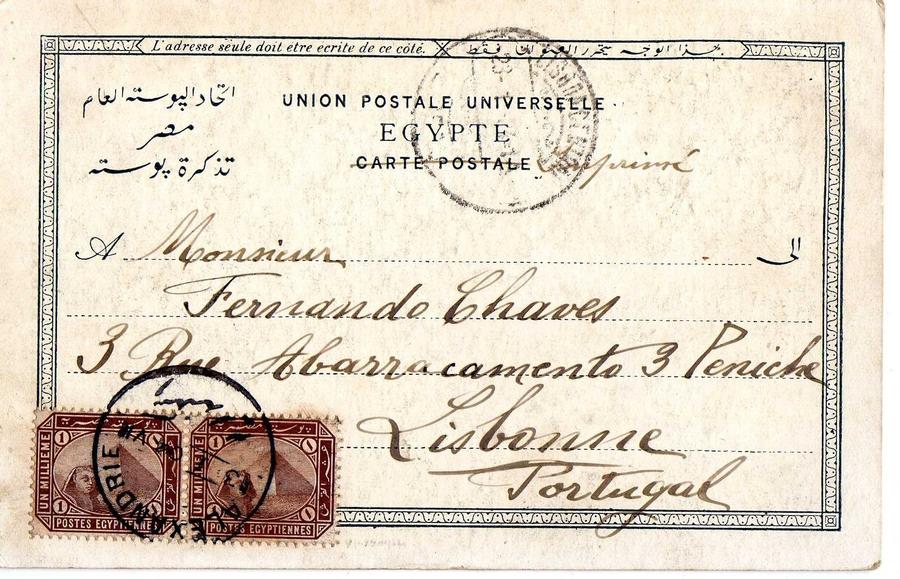 L'adresse seule doit être écrite de ce côté.
هذا الوجه محرر العنوان فقط
اتحاد البوسته العام
مصر
تذكرة بوسته
UNION POSTALE UNIVERSELLE
EGYPTE
CARTE POSTALE Imprimé
A Monsieur الى
Fernando Chaves
3 Rue Abarracamento 3 Peniche
Lisbonne
Portugal
UN MILLIEME
1
1
POSTES EGYPTIENNES
UN MILLIEME
1
1
POSTES EGYPTIENNES
ALEXANDRIE